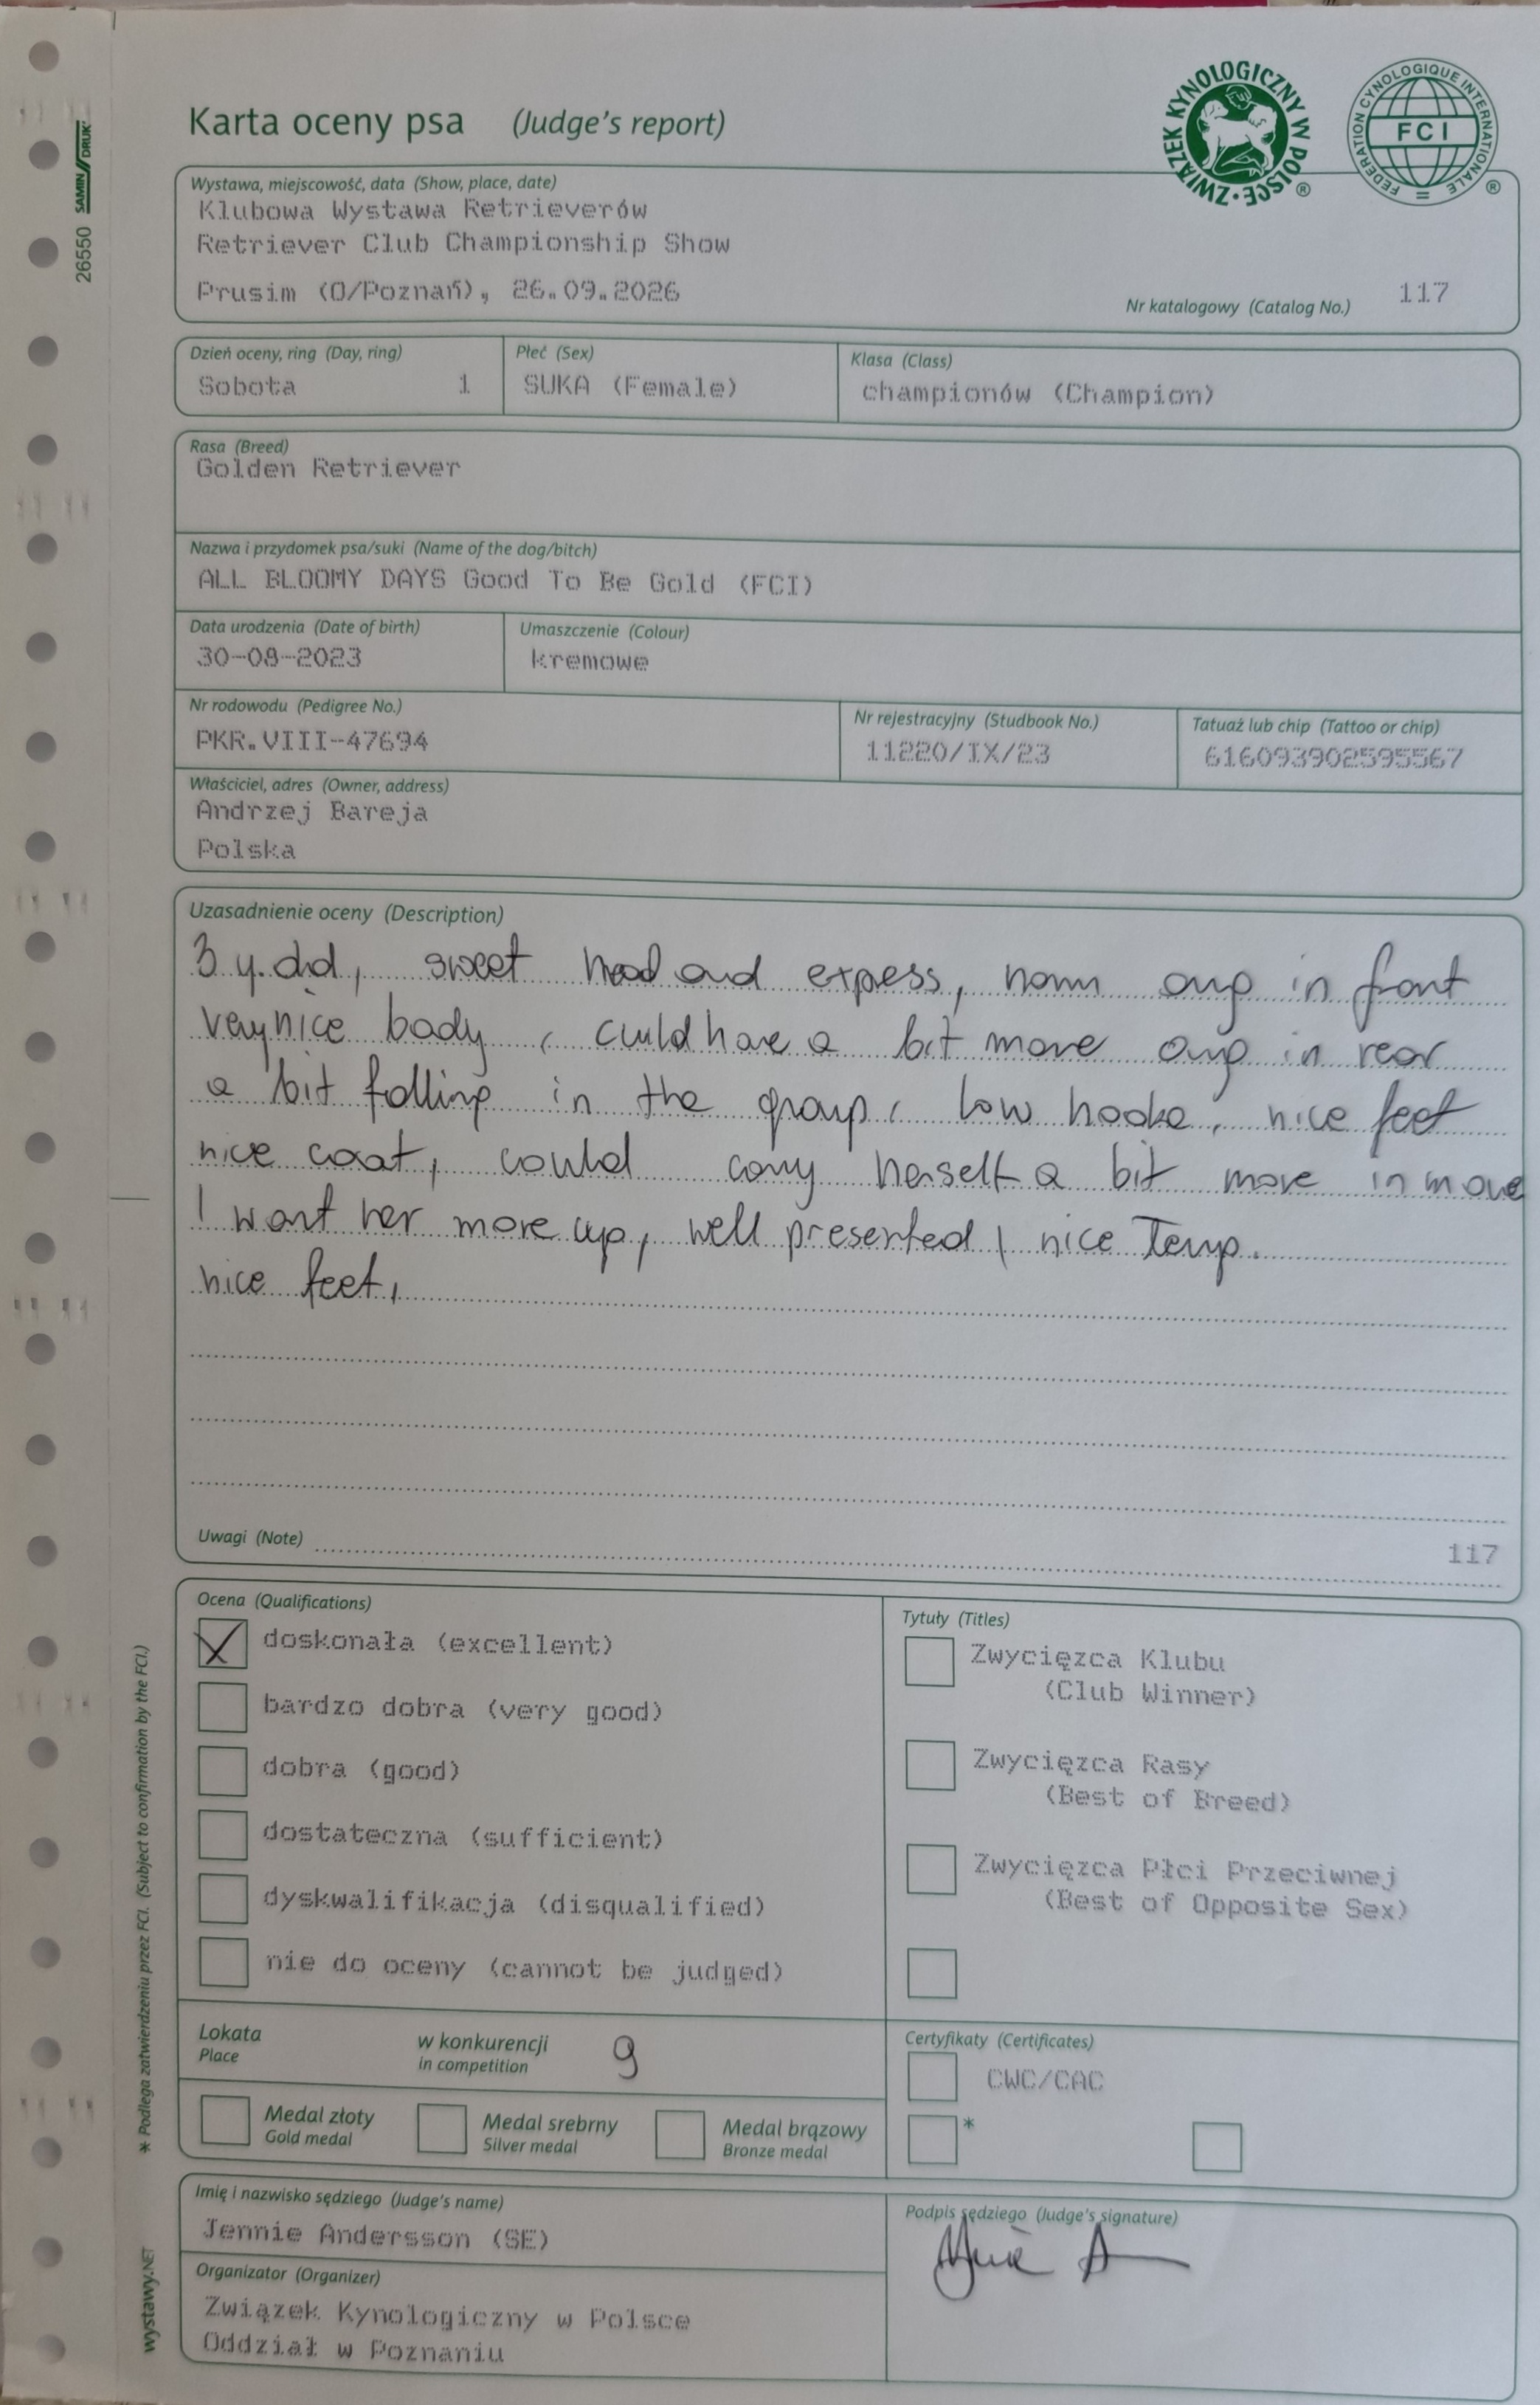 Karta oceny psa (Judge's report)
ZWIĄZEK KYNOLOGICZNY W POLSCE ®
FEDERATION CYNOLOGIQUE INTERNATIONALE FCI ®
26550 SAMIN DRUK
Wystawa, miejscowość, data (Show, place, date)
Klubowa Wystawa Retrieverów
Retriever Club Championship Show
Prusim (O/Poznań), 26.09.2026
Nr katalogowy (Catalog No.) 117
Dzień oceny, ring (Day, ring) Płeć (Sex) Klasa (Class)
Sobota 1 SUKA (Female) championów (Champion)
Rasa (Breed)
Golden Retriever
Nazwa i przydomek psa/suki (Name of the dog/bitch)
ALL BLOOMY DAYS Good To Be Gold (FCI)
Data urodzenia (Date of birth) Umaszczenie (Colour)
30-08-2023 kremowe
Nr rodowodu (Pedigree No.) Nr rejestracyjny (Studbook No.) Tatuaż lub chip (Tattoo or chip)
PKR.VIII-47694 11220/IX/23 616093902595567
Właściciel, adres (Owner, address)
Andrzej Bareja
Polska
Uzasadnienie oceny (Description)
3 y. old, sweet head and express, norm ang in front
very nice body, could have a bit more ang in rear
a bit falling in the group, low hocks, nice feet
nice coat, could carry herself a bit more in move
I want her more up, well presented, nice Temp.
nice feet,
Uwagi (Note) 117
Ocena (Qualifications)
doskonała (excellent)
bardzo dobra (very good)
dobra (good)
dostateczna (sufficient)
dyskwalifikacja (disqualified)
nie do oceny (cannot be judged)
Tytuły (Titles)
Zwycięzca Klubu
(Club Winner)
Zwycięzca Rasy
(Best of Breed)
Zwycięzca Płci Przeciwnej
(Best of Opposite Sex)
Lokata w konkurencji 9
Place in competition
Medal złoty Medal srebrny Medal brązowy
Gold medal Silver medal Bronze medal
Certyfikaty (Certificates)
CWC/CAC
*
Imię i nazwisko sędziego (Judge's name)
Jennie Andersson (SE)
Podpis sędziego (Judge's signature)
Organizator (Organizer)
Związek Kynologiczny w Polsce
Oddział w Poznaniu
* Podlega zatwierdzeniu przez FCI. (Subject to confirmation by the FCI.)
wystawy.NET